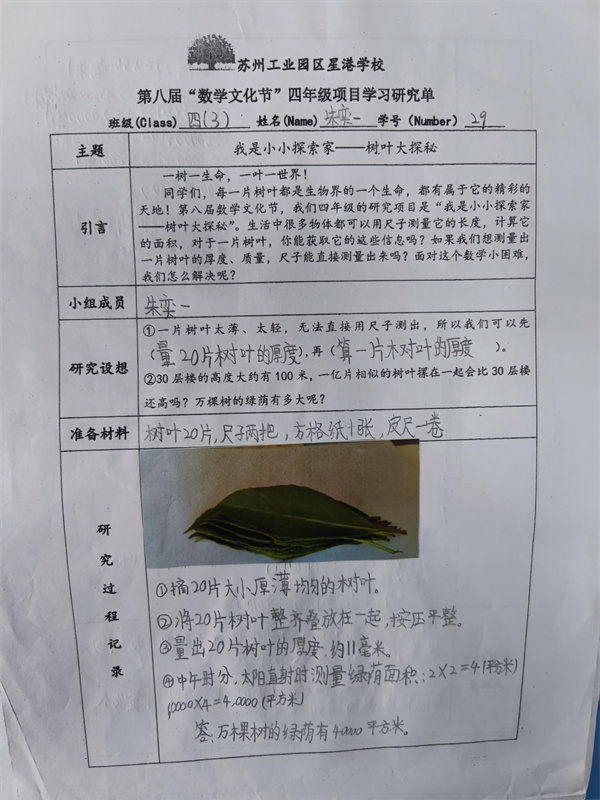 苏州工业园区星港学校
第八届“数学文化节”四年级项目学习研究单
班级(Class) 四(3) 姓名(Name) 朱奕一 学号 (Number) 29
主题 我是小小探索家——树叶大探秘
引言
一树一生命，一叶一世界！
同学们，每一片树叶都是生物界的一个生命，都有属于它的精彩的
天地！第八届数学文化节，我们四年级的研究项目是“我是小小探索家
——树叶大探秘”。生活中很多物体都可以用尺子测量它的长度，计算它
的面积，对于一片树叶，你能获取它的这些信息吗？如果我们想测量出
一片树叶的厚度、质量，尺子能直接测量出来吗？面对这个数学小困难，
我们怎么解决呢？
小组成员 朱奕一
研究设想
①一片树叶太薄、太轻，无法直接用尺子测出，所以我们可以先
（量20片树叶的厚度），再（算一片树叶的厚度）。
②30层楼的高度大约有100米，一亿片相似的树叶摞在一起会比30层楼
还高吗？万棵树的绿荫有多大呢？
准备材料 树叶20片，尺子两把，方格纸1张，皮尺一卷
研究过程记录
①摘20片大小厚薄均匀的树叶。
②将20片树叶整齐叠放在一起，按压平整。
③量出20片树叶的厚度，约11毫米。
④中午时分，太阳直射时测量绿荫面积：2×2=4(平方米)
10000×4=40000(平方米)
答：万棵果树的绿荫有40000平方米。